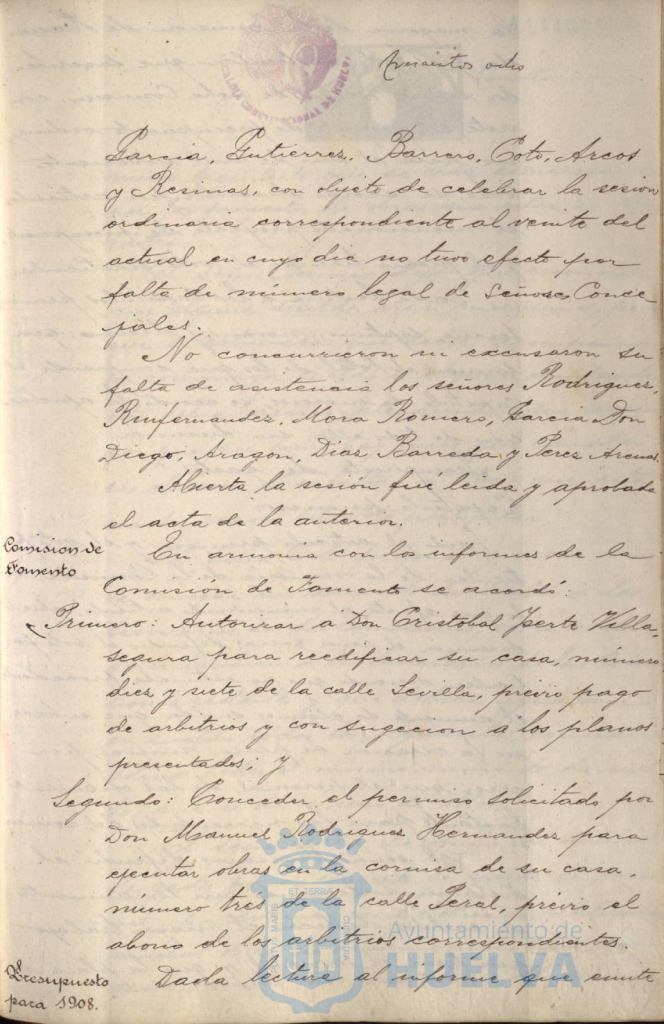 ocho
Garcia, Gutierrez, Barrero, Coto, Arcos
y Resinas, con objeto de celebrar la sesion
ordinaria correspondiente al veinte del
actual en cuyo dia no tuvo efecto por
falta de número legal de Señores Conce
jales.
No concurrieron ni excusaron su
falta de asistencia los señores Rodriguez,
Ruifernandez, Mora Romero, Garcia Don
Diego, Aragon, Diaz Barreda y Perez Arenas.
Abierta la sesión fué leida y aprobada
el acta de la anterior.
Comision de
Fomento
En armonia con los informes de la
Comisión de Fomento se acordó:
Primero: Autorizar á Don Cristobal Yserte Villa-
segura para reedificar su casa, número
diez y siete de la calle Sevilla, prévio pago
de arbitrios y con sugecion á los planos
presentados; y
Segundo: Conceder el permiso solicitado por
Don Manuel Rodriguez Hernandez para
ejecutar obras en la cornisa de su casa,
número tres de la calle Peral, prévio el
abono de los arbitrios correspondientes.
Presupuesto
para 1908.
Dada lectura al informe que emite
Ayuntamiento de
HUELVA